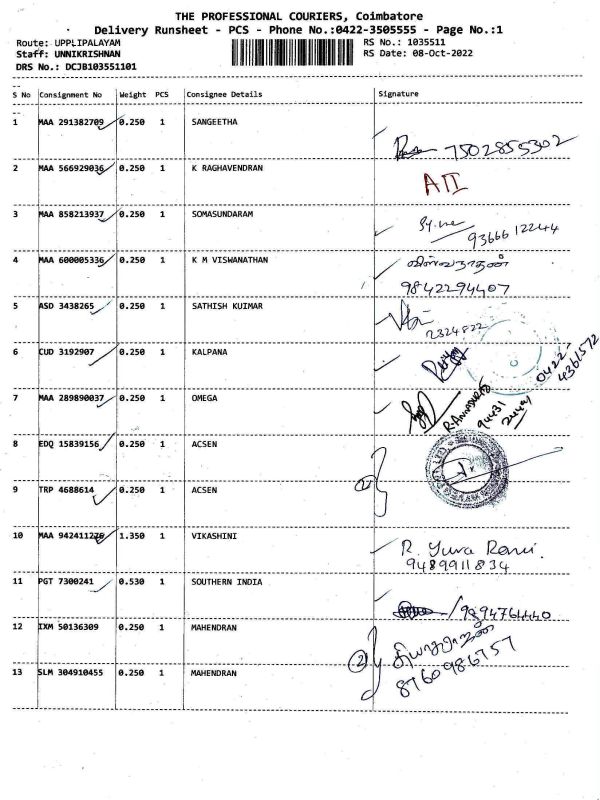 THE PROFESSIONAL COURIERS, Coimbatore
Delivery Runsheet - PCS - Phone No.:0422-3505555 - Page No.:1
Route: UPPLIPALAYAM RS No.: 1035511
Staff: UNNIKRISHNAN RS Date: 08-Oct-2022
DRS No.: DCJB103551101
S No Consignment No Weight PCS Consignee Details Signature
1 MAA 291382709 0.250 1 SANGEETHA
7502855302
2 MAA 566929036 0.250 1 K RAGHAVENDRAN
3 MAA 858213937 0.250 1 SOMASUNDARAM
9366612244
4 MAA 600005336 0.250 1 K M VISWANATHAN விஸ்வநாதன்
9842294407
5 ASD 3438265 0.250 1 SATHISH KUIMAR
2324822
6 CUD 3192907 0.250 1 KALPANA
0422-
4361572
7 MAA 289890037 0.250 1 OMEGA
94431
8 EDQ 15839156 0.250 1 ACSEN
9 TRP 4688614 0.250 1 ACSEN
10 MAA 942411226 1.350 1 VIKASHINI
R. Yuva Rani.
9489911834
11 PGT 7300241 0.530 1 SOUTHERN INDIA
/9894764440
12 IXM 50136309 0.250 1 MAHENDRAN
2 தியாகராஜன்
13 SLM 304910455 0.250 1 MAHENDRAN
8760986757